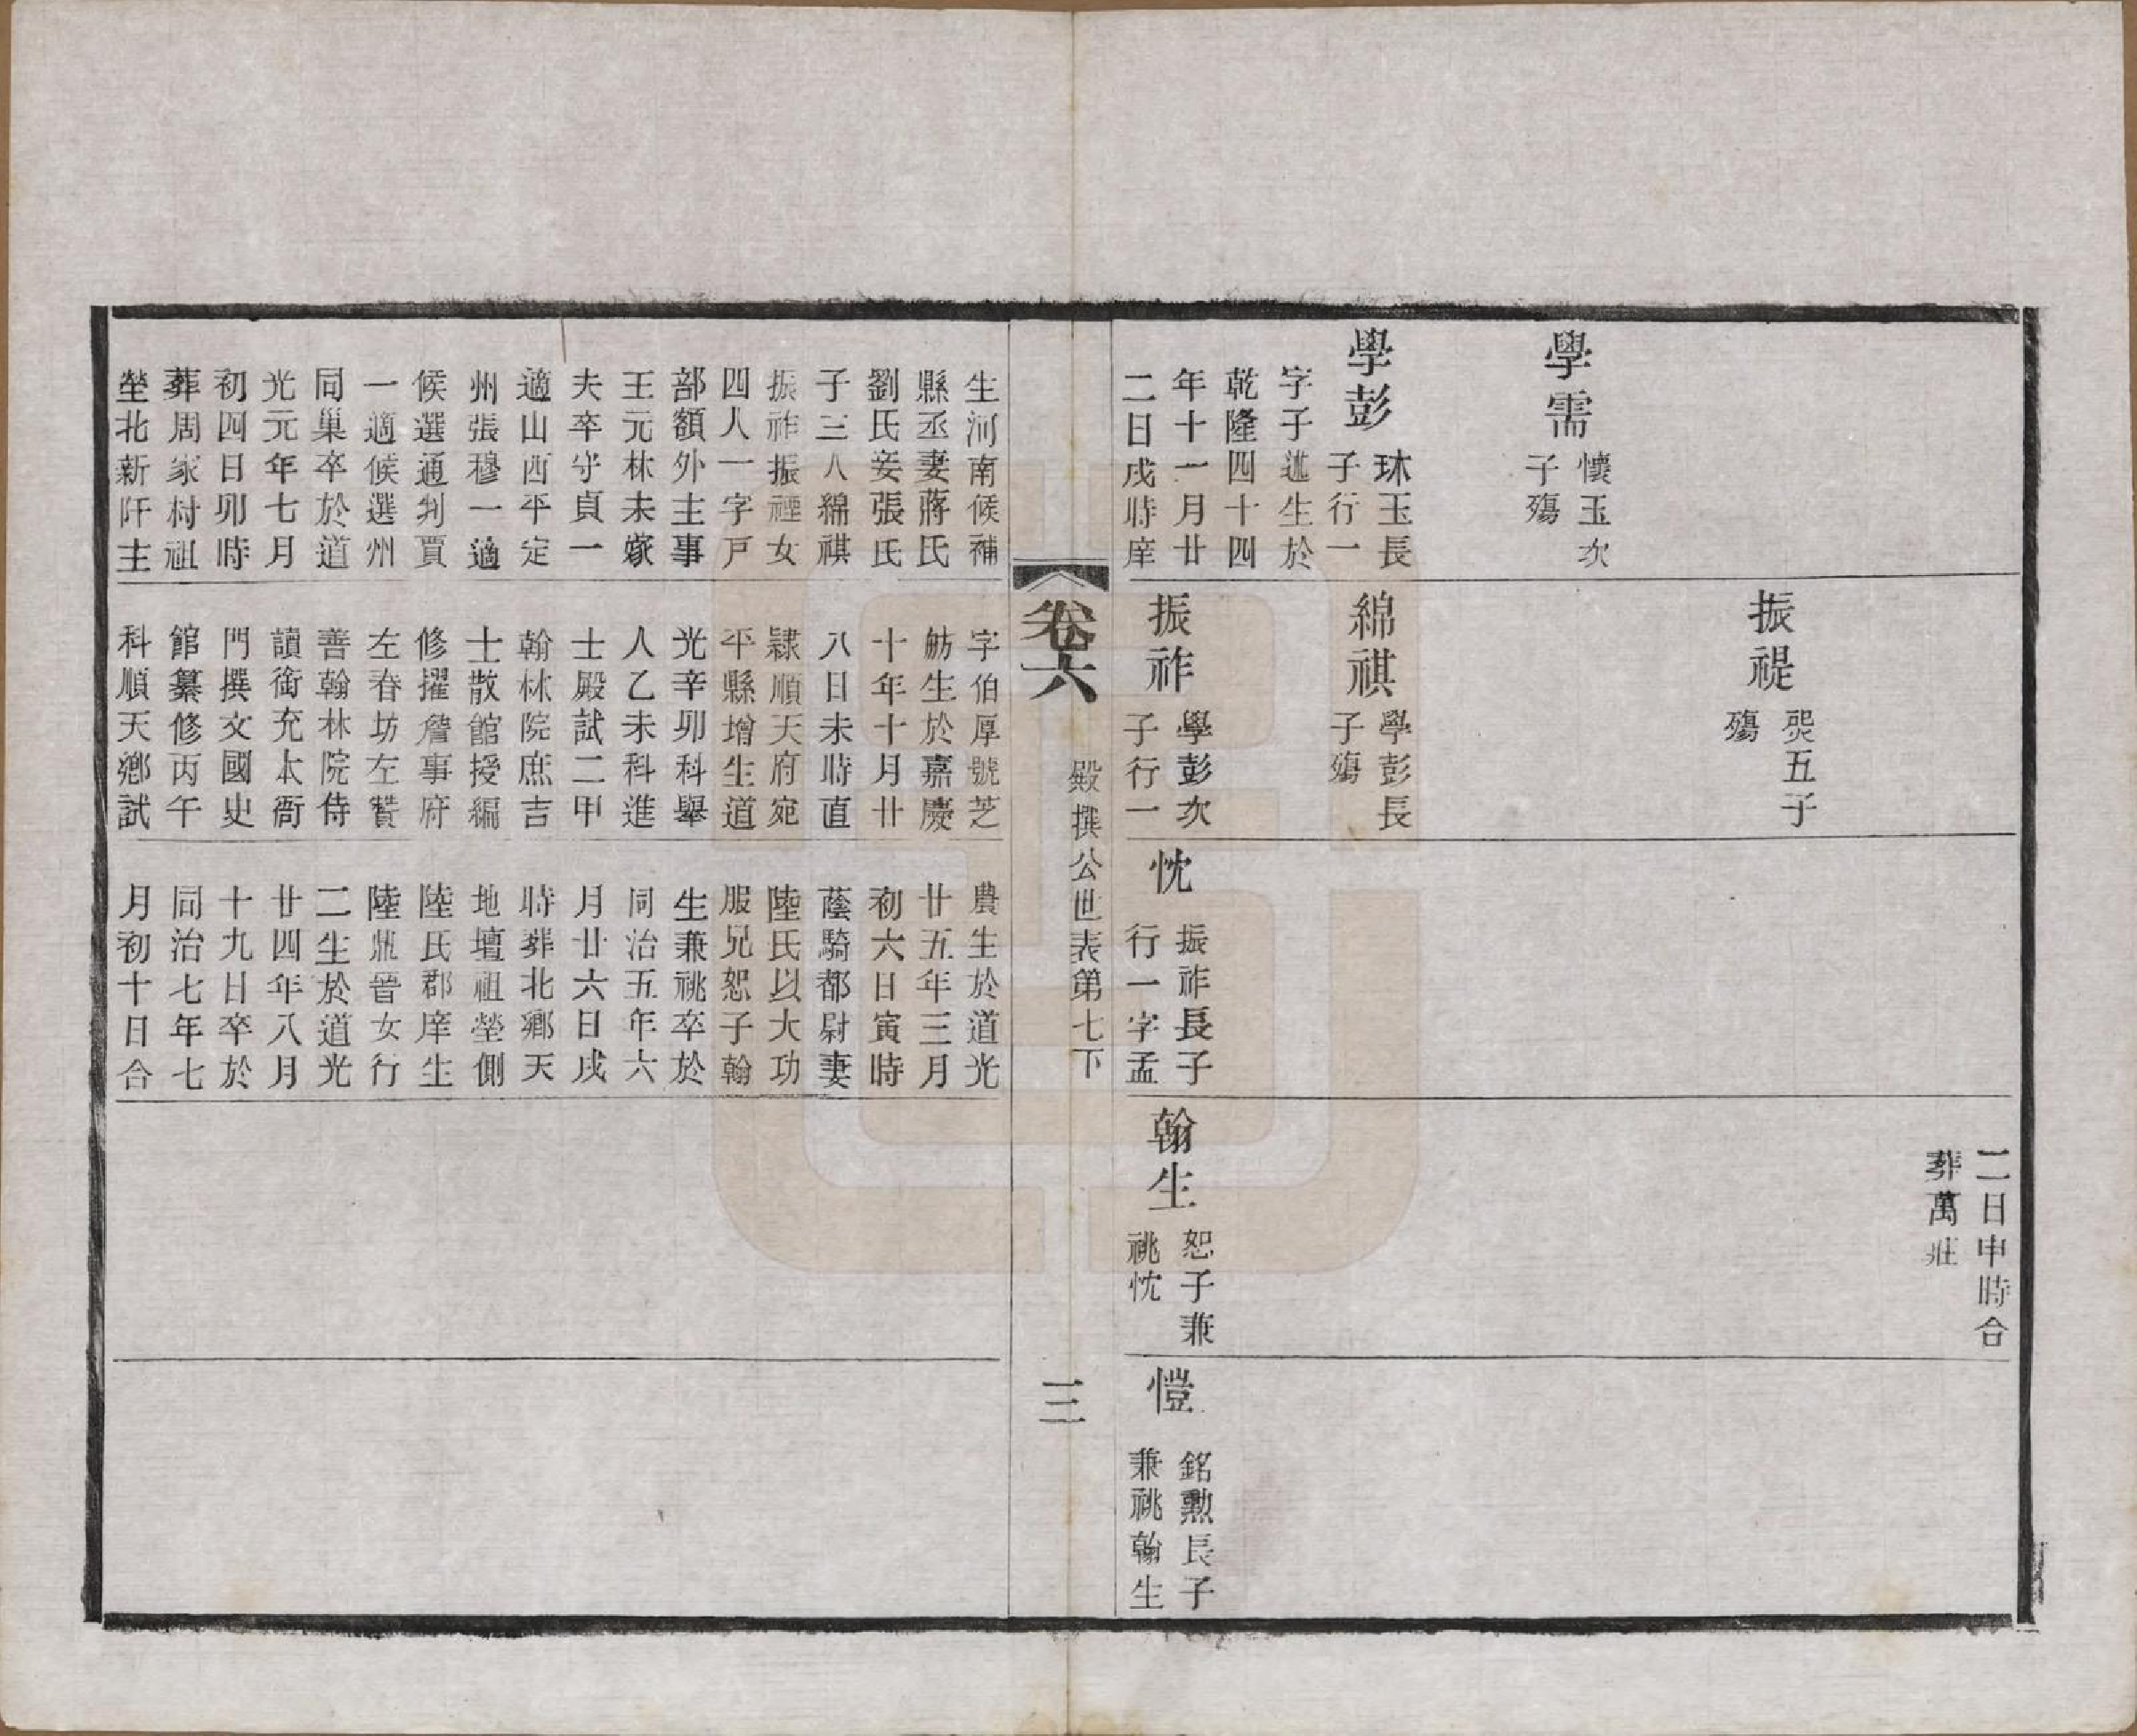 學需
懷玉次
子殤
學彭
玞玉長
子行一
字子述生於
乾隆四十四
年十一月廿
二日戌時庠
振禔
五子
殤
綿祺
學彭長
子殤
振祚
學彭次
子行一
忱
振祚長子
行一字孟
二日申時合
葬萬莊
翰生
恕子兼
祧忱
愷
銘勲長子
兼祧翰生
卷六
殿撰公世表第七下
三
生河南候補
縣丞妻蔣氏
劉氏妾張氏
子三人綿祺
振祚振禋女
四人一字戸
部額外主事
王元林未嫁
夫卒守貞一
適山西平定
州張穆一適
候選通判賈
一適候選州
同巢卒於道
光元年七月
初四日卯時
葬周家村祖
塋北新阡主
字伯厚號芝
舫生於嘉慶
十年十月廿
八日未時直
隷順天府宛
平縣增生道
光辛卯科舉
人乙未科進
士殿試二甲
翰林院庶吉
士散館授編
修擢詹事府
左春坊左贊
善翰林院侍
讀銜充本衙
門撰文國史
館纂修丙午
科順天鄉試
農生於道光
廿五年三月
初六日寅時
蔭騎都尉妻
陸氏以大功
服兄恕子翰
生兼祧卒於
同治五年六
月廿六日戌
時葬北鄉天
地壇祖塋側
陸氏郡庠生
陸鼎晉女行
二生於道光
廿四年八月
十九日卒於
同治七年七
月初十日合